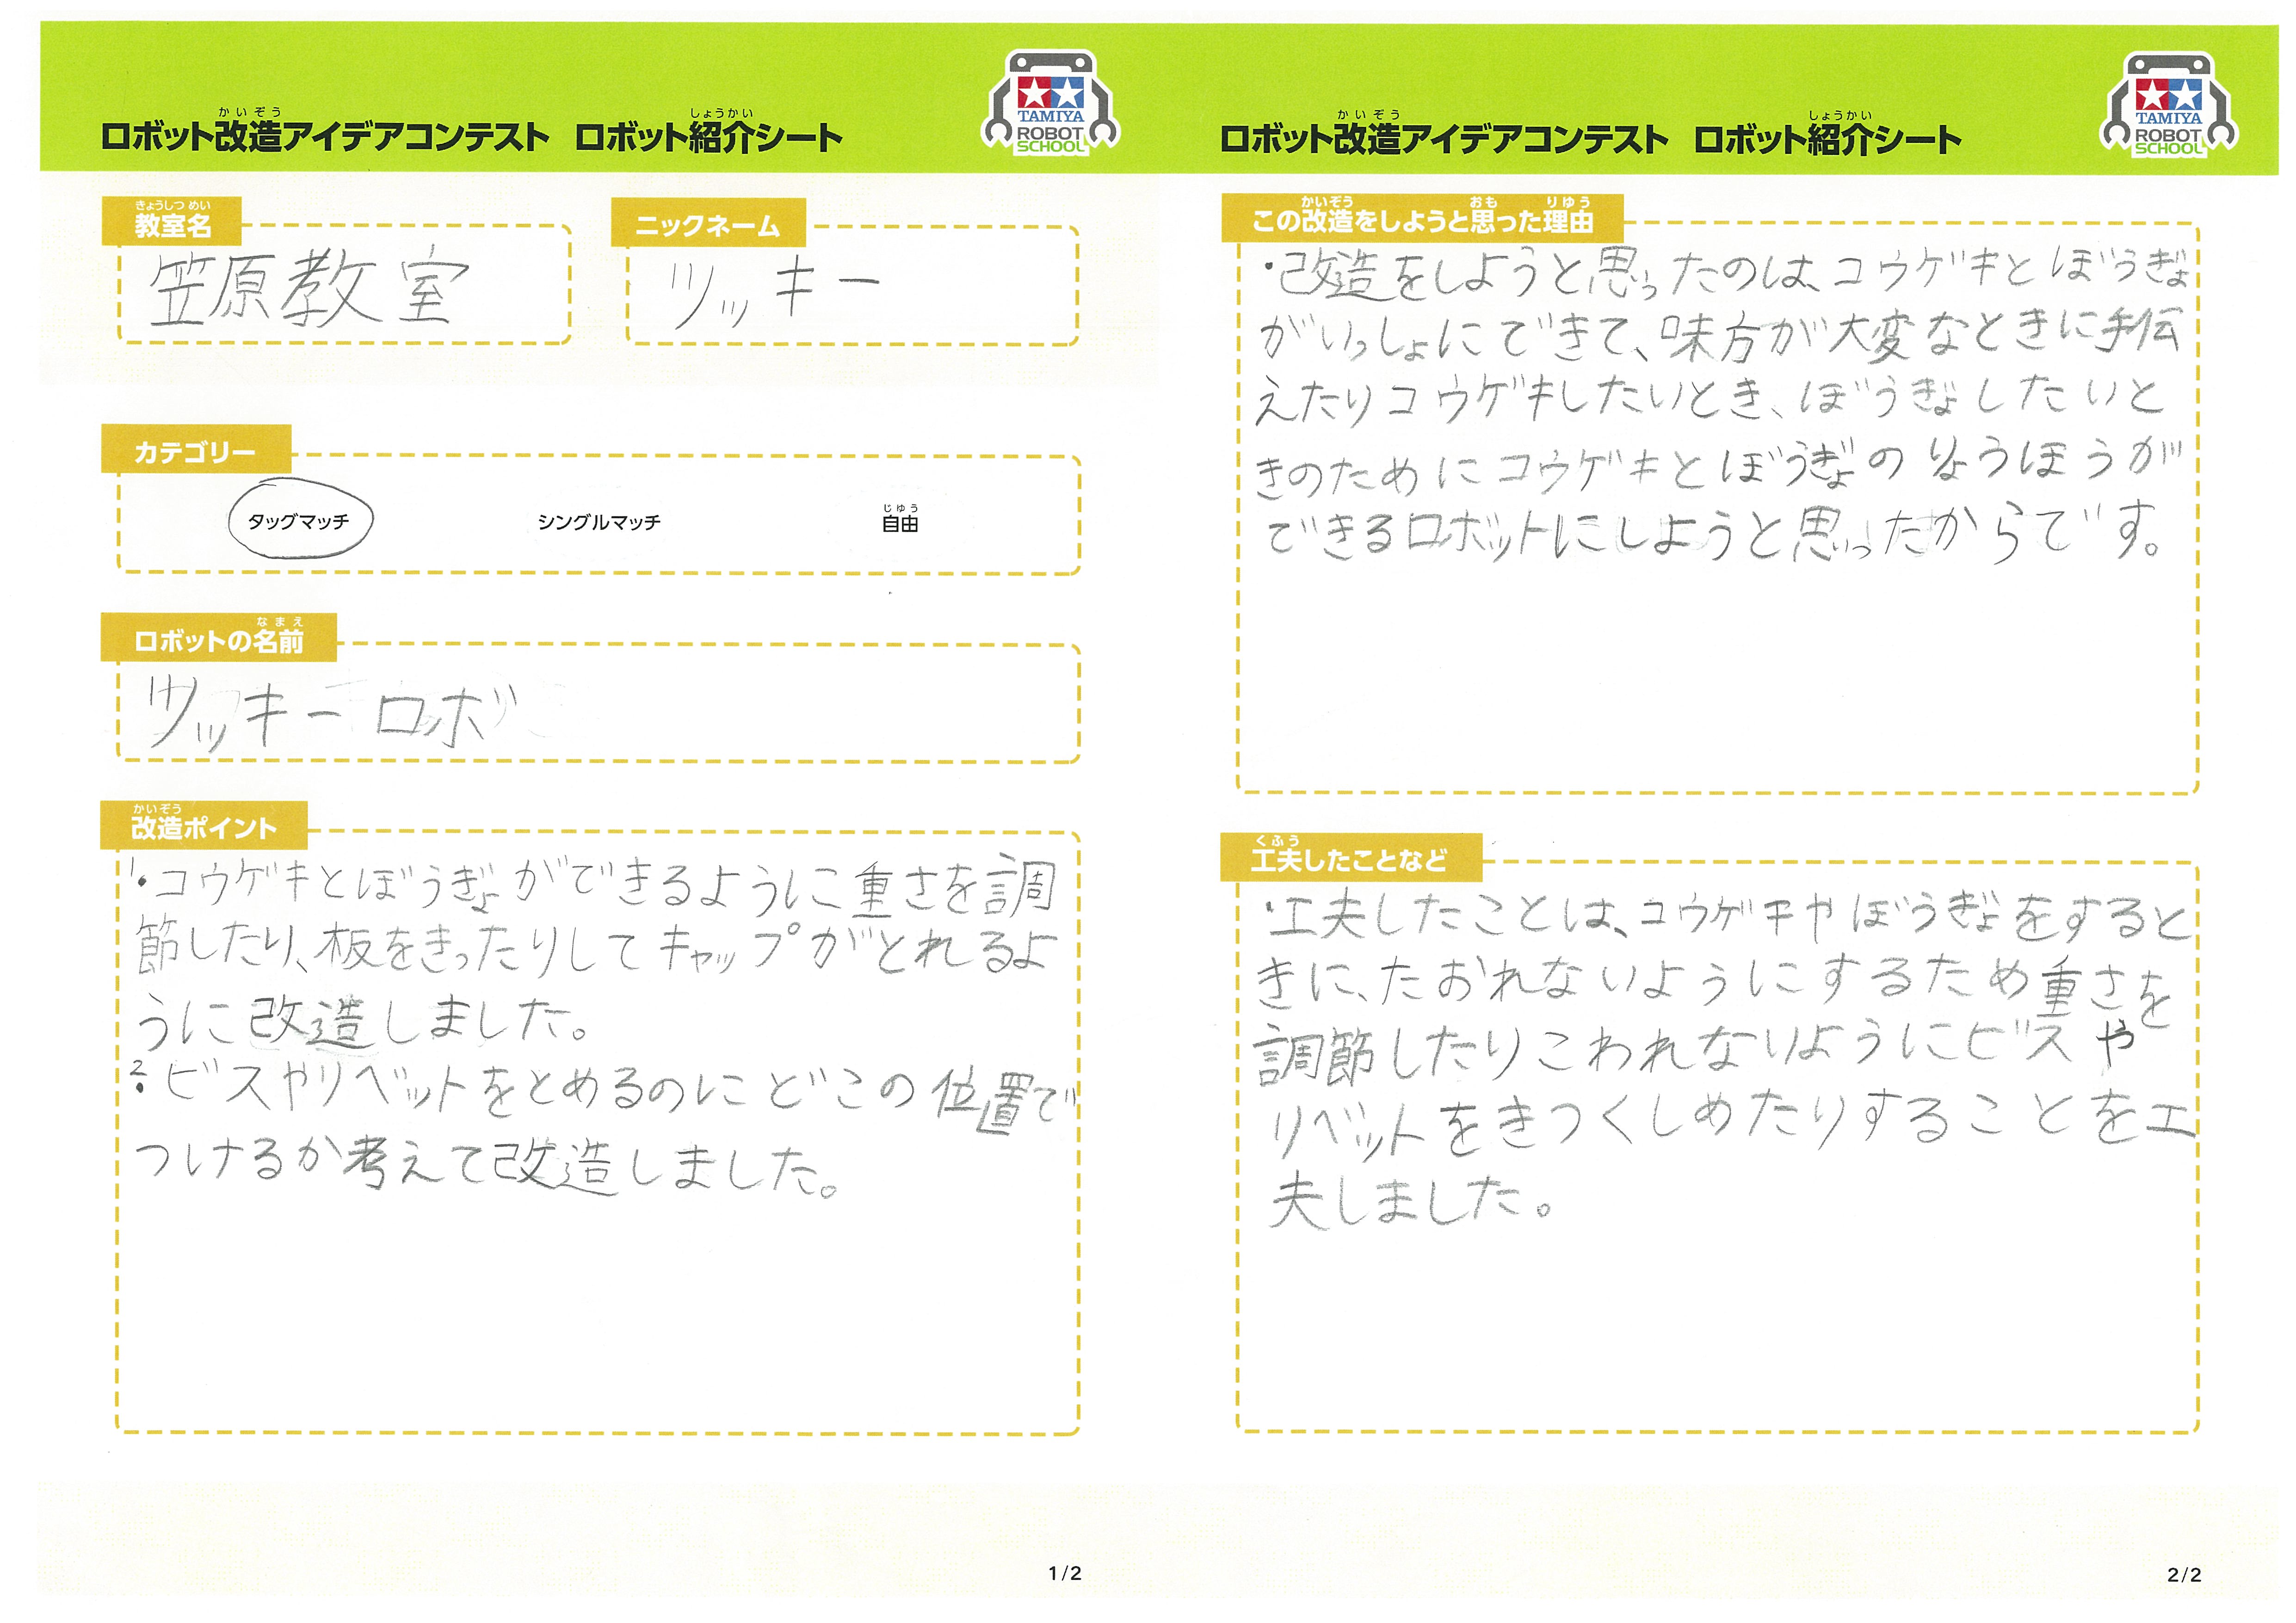 かいぞう しょうかい
ロボット改造アイデアコンテスト ロボット紹介シート
TAMIYA
ROBOT
SCHOOL
きょうしつ めい
教室名
笠原教室
ニックネーム
ツッキー
カテゴリー
タッグマッチ
シングルマッチ
じゆう
自由
なまえ
ロボットの名前
ツッキーロボ
かいぞう
改造ポイント
1・コウゲキとぼうぎょができるように重さを調
節したり、板をきったりしてキャップがとれるよ
うに改造しました。
2・ビスやリベットをとめるのにどこの位置で
つけるか考えて改造しました。
1/2
かいぞう しょうかい
ロボット改造アイデアコンテスト ロボット紹介シート
TAMIYA
ROBOT
SCHOOL
かいぞう おも りゆう
この改造をしようと思った理由
・改造をしようと思ったのは、コウゲキとぼうぎょ
がいっしょにできて、味方が大変なときに手伝
えたりコウゲキしたいとき、ぼうぎょしたいと
きのためにコウゲキとぼうぎょのりょうほうが
できるロボットにしようと思ったからです。
くふう
工夫したことなど
・工夫したことは、コウゲキやぼうぎょをすると
きに、たおれないようにするため重さを
調節したりこわれないようにビスや
リベットをきつくしめたりすることを工
夫しました。
2/2